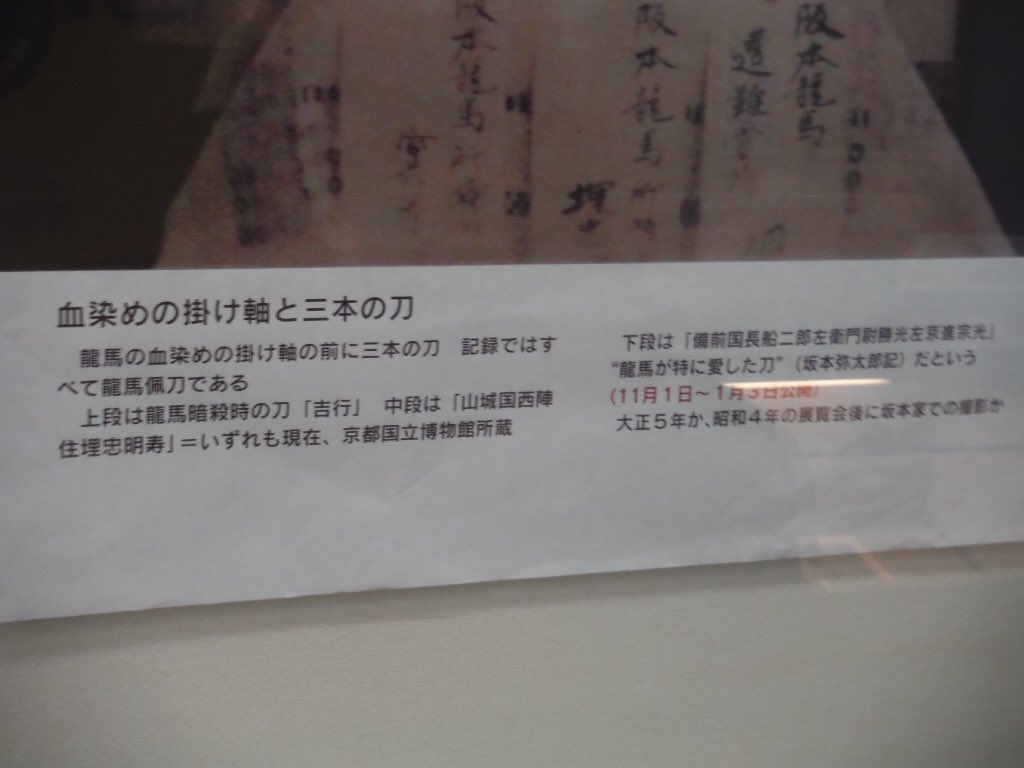 阪本龍馬
遭難
阪本龍馬
阪本龍馬
血染めの掛け軸と三本の刀
龍馬の血染めの掛け軸の前に三本の刀　記録ではす
べて龍馬佩刀である
上段は龍馬暗殺時の刀「吉行」　中段は「山城国西陣
住埋忠明寿」＝いずれも現在、京都国立博物館所蔵
下段は「備前国長船二郎左衛門尉勝光左京進宗光」
“龍馬が特に愛した刀”（坂本弥太郎記）だという
（11月１日～１月３日公開）
大正５年か、昭和４年の展覧会後に坂本家での撮影か